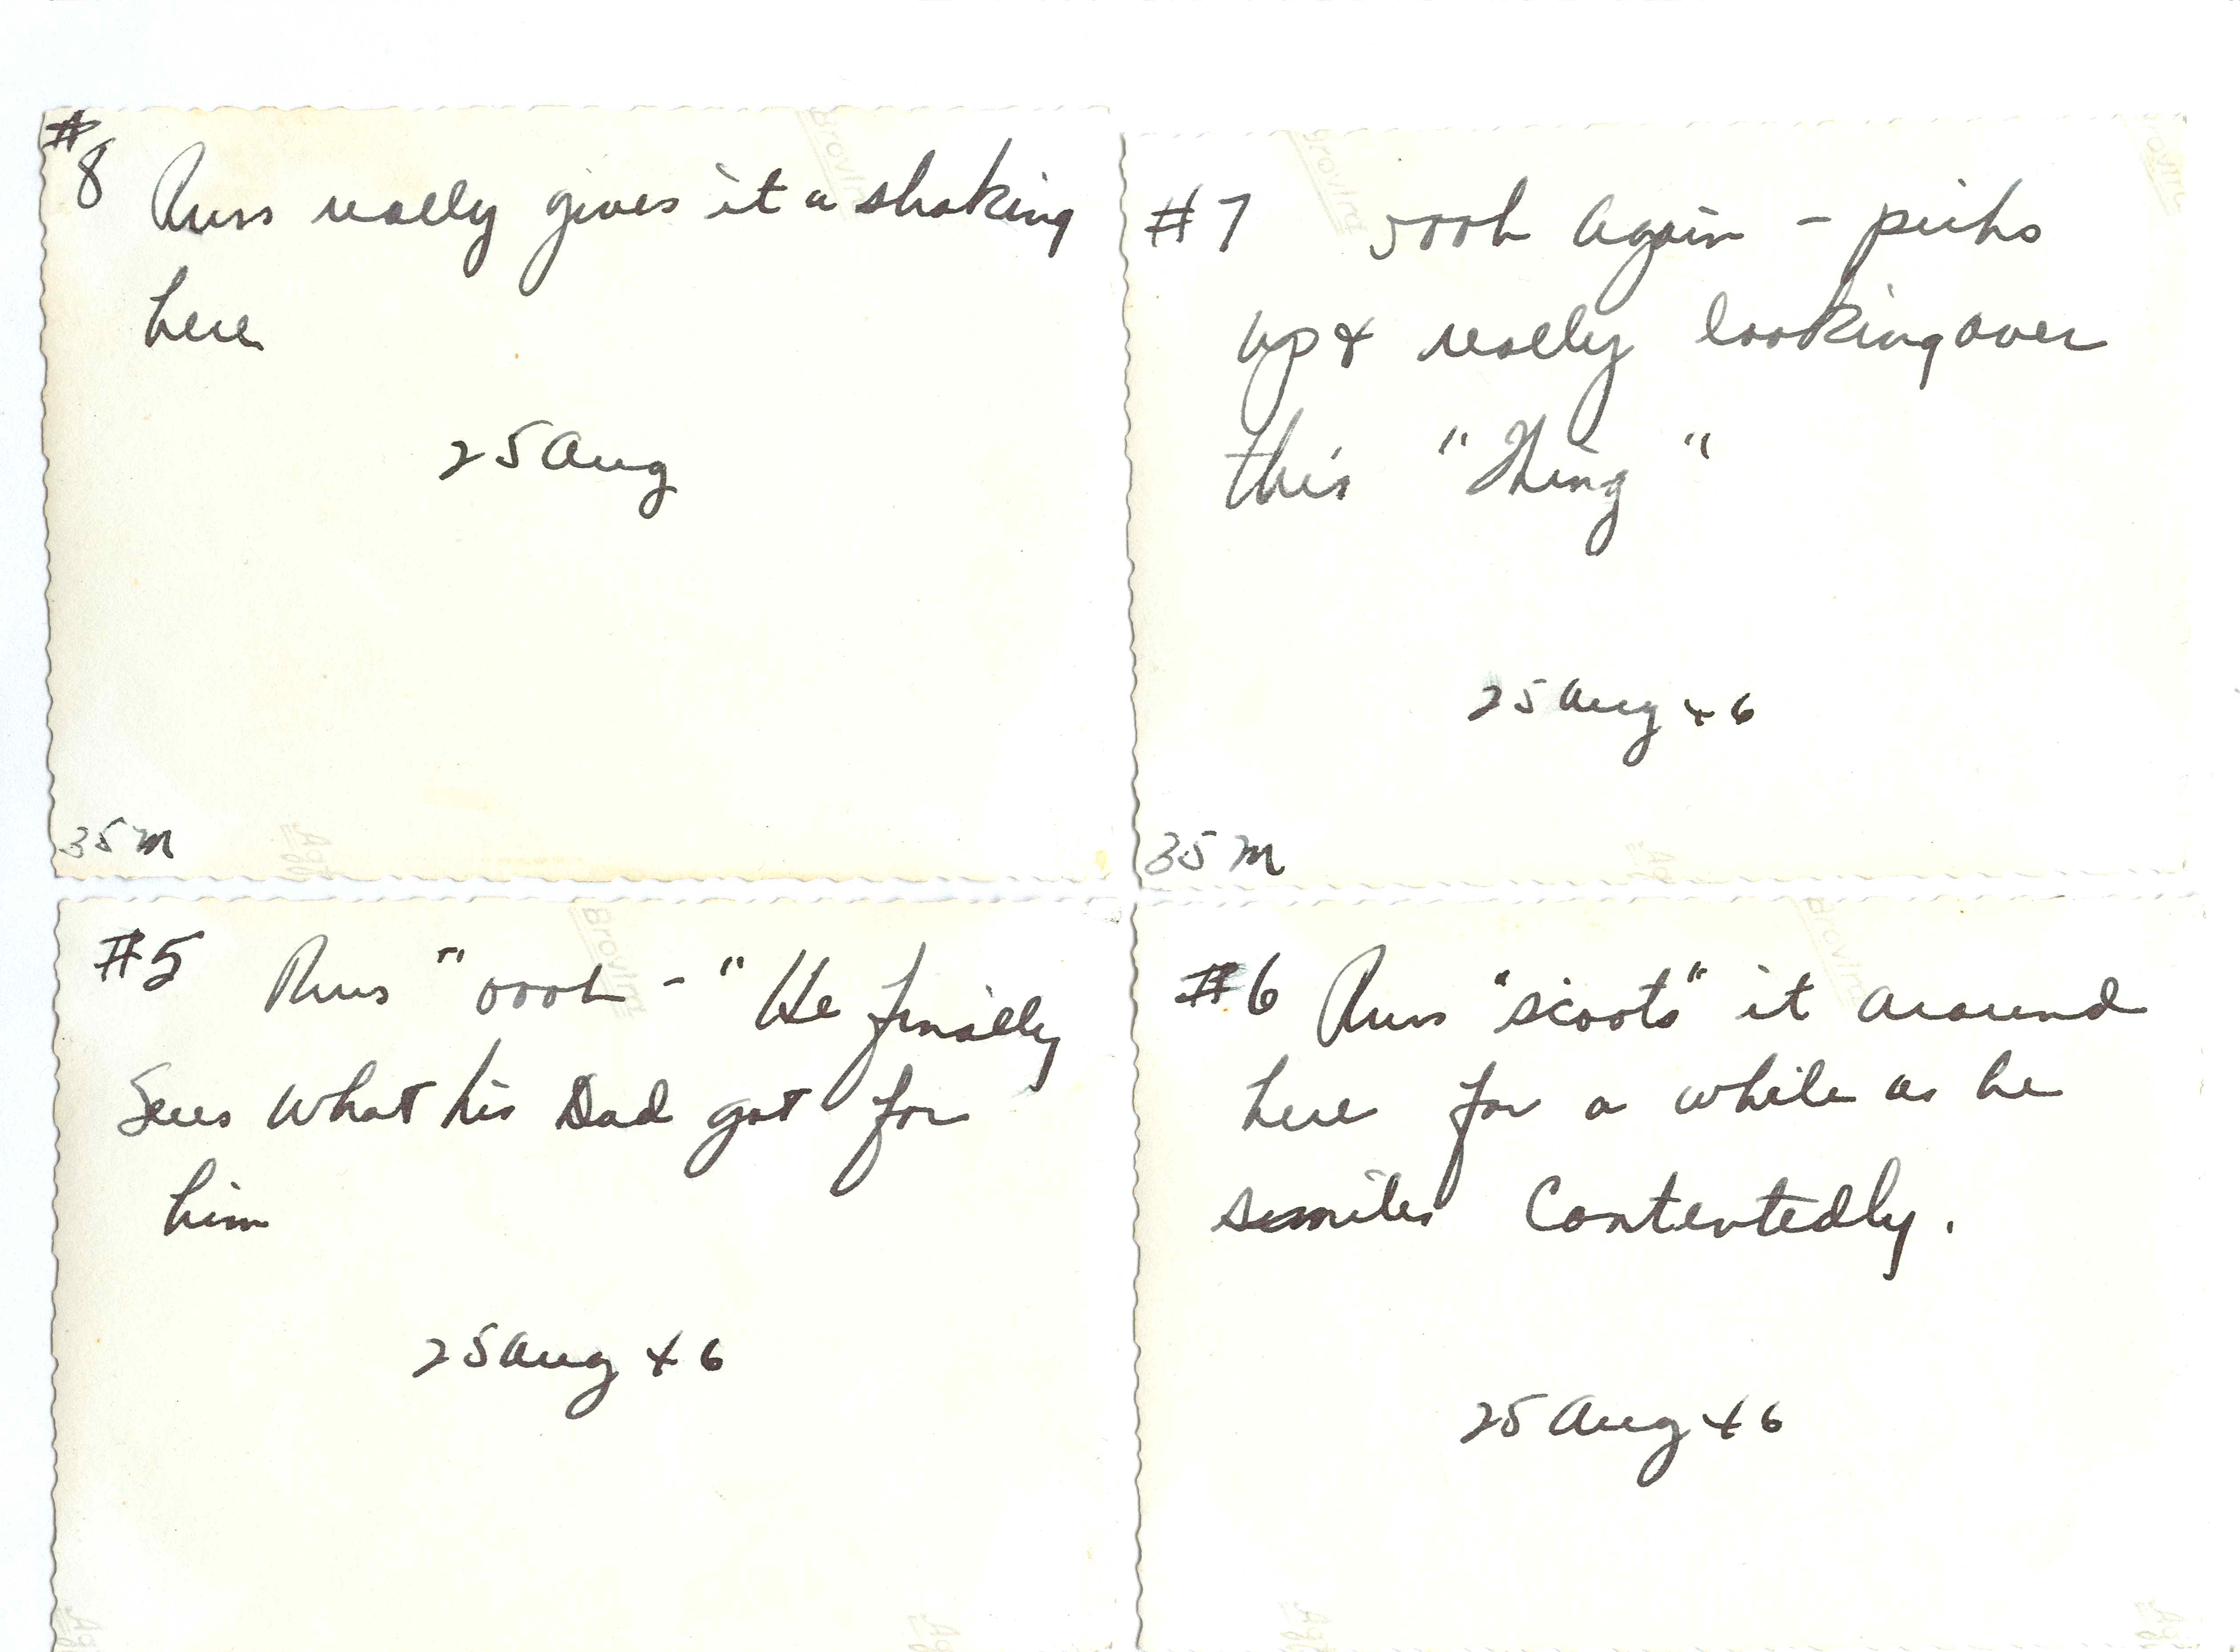 #8 Russ really gives it a shaking
here
25 Aug
35 m
#7 oooh again - picks
up & really looking over
this "Thing"
25 Aug 46
35 m
#5 Russ "oooh - " He finally
Sees what his Dad got for
him
25 Aug 46
#6 Russ "scoots" it around
here for a while as he
smiles Contentedly.
25 Aug 46
Brovira
Brovira
Brovira
Brovira
Brovira